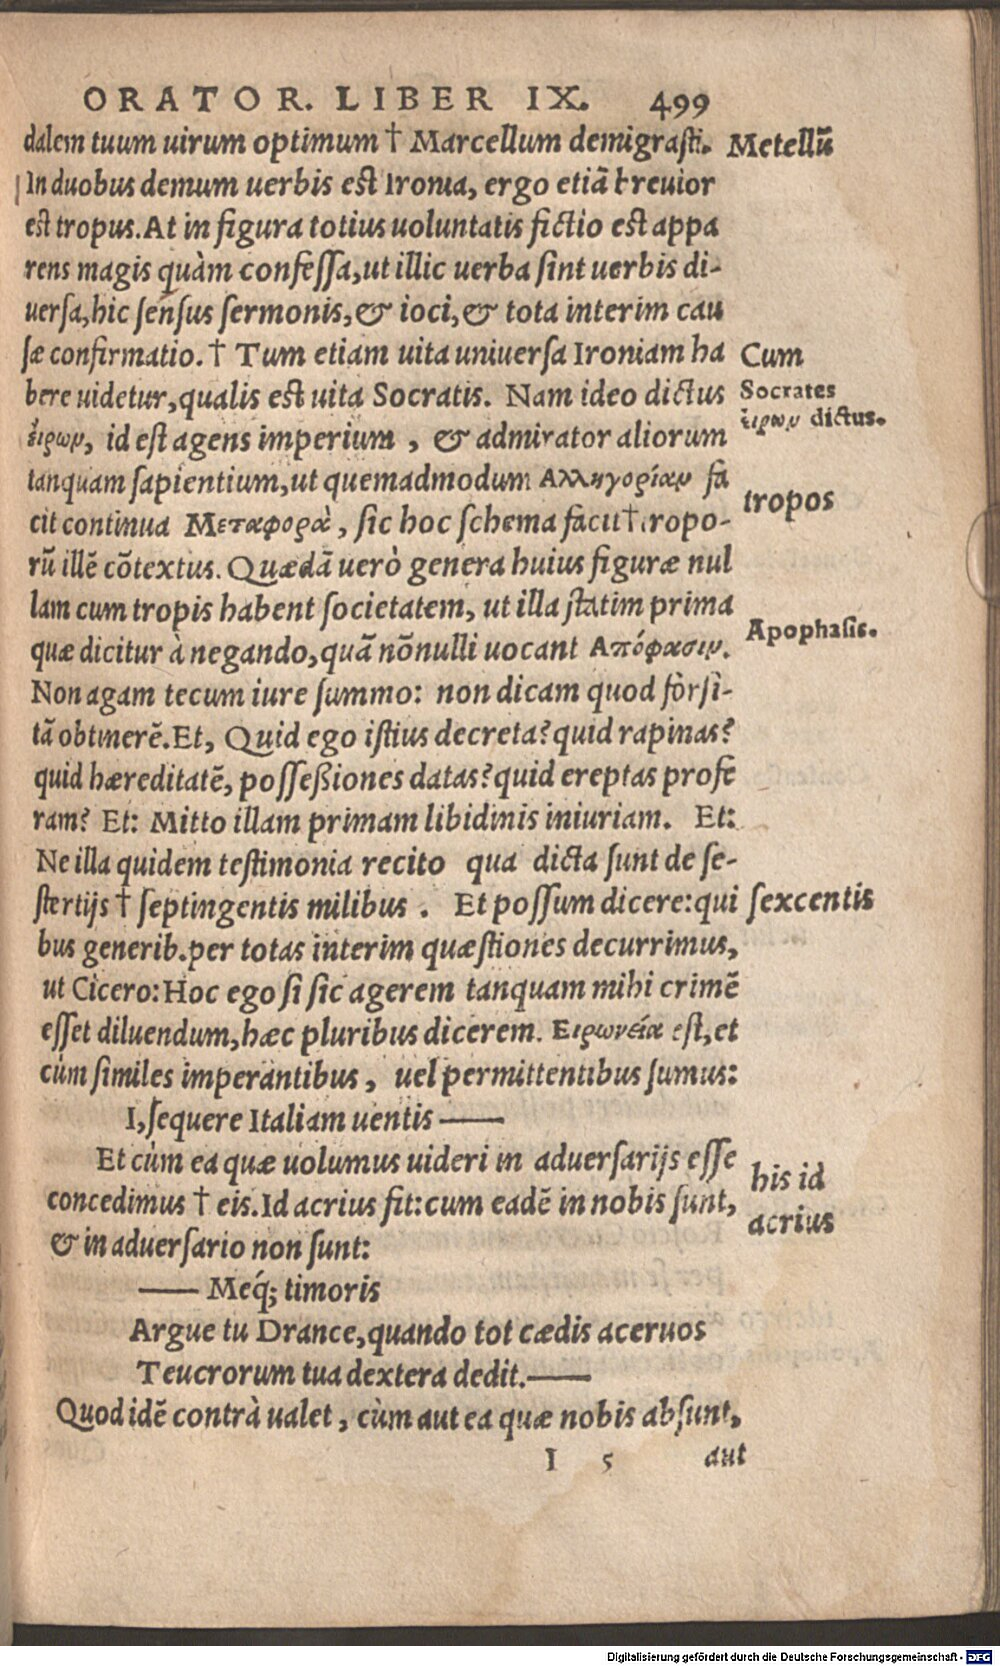 ORATOR. LIBER IX. 499
dalem tuum uirum optimum † Marcellum demigrasti. Metellū
In duobus demum uerbis est Ironia, ergo etiā breuior
est tropus. At in figura totius uoluntatis fictio est appa
rens magis quàm confessa, ut illic uerba sint uerbis di-
uersa, hic sensus sermonis, & ioci, & tota interim cau
sæ confirmatio. † Tum etiam uita uniuersa Ironiam ha Cum
bere uidetur, qualis est uita Socratis. Nam ideo dictus Socrates
εἴρων, id est agens imperium, & admirator aliorum εἴρων dictus.
tanquam sapientium, ut quemadmodum Αλληγορίαν fa
cit continua Μεταφορὰ, sic hoc schema facit † tropo- tropos
rū ille cōtextus. Quædā uerò genera huius figuræ nul
lam cum tropis habent societatem, ut illa statim prima
quæ dicitur à negando, quā nōnulli uocant Απόφασιν. Apophasis.
Non agam tecum iure summo: non dicam quod forsi-
tā obtinerē. Et, Quid ego istius decreta? quid rapinas?
quid hæreditatē, possessiones datas? quid ereptas profe
ram? Et: Mitto illam primam libidinis iniuriam. Et:
Ne illa quidem testimonia recito qua dicta sunt de se-
stertijs † septingentis milibus. Et possum dicere: qui sexcentis
bus generib. per totas interim quæstiones decurrimus,
ut Cicero: Hoc ego si sic agerem tanquam mihi crimē
esset diluendum, hæc pluribus dicerem. Ειρωνεία est, et
cùm similes imperantibus, uel permittentibus sumus:
I, sequere Italiam uentis ——
Et cùm ea quæ uolumus uideri in aduersarijs esse
concedimus † eis. Id acrius fit: cum eadē in nobis sunt, his id acrius
& in aduersario non sunt:
—— Meq́; timoris
Argue tu Drance, quando tot cædis aceruos
Teucrorum tua dextera dedit. ——
Quod idē contrà ualet, cùm aut ea quæ nobis absunt,
I 5 aut
Digitalisierung gefördert durch die Deutsche Forschungsgemeinschaft - DFG